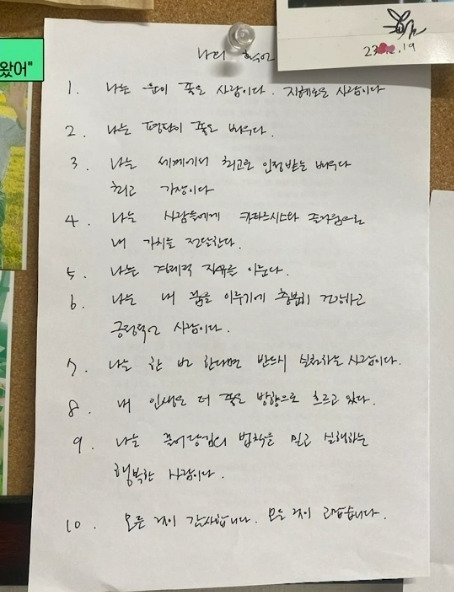 왔어"
23 12. 19
나의 확언
1. 나는 운이 좋은 사람이다. 지혜로운 사람이다
2. 나는 평판이 좋은 배우다.
3. 나는 세계에서 최고로 인정받는 배우다
최고 가장이다
4. 나는 사람들에게 카타르시스와 즐거움으로
내 가치를 전달한다.
5. 나는 경제적 자유를 이룬다.
6. 나는 내 꿈을 이루기에 충분히 건강하고
긍정적인 사람이다.
7. 나는 한 번 한다면 반드시 실천하는 사람이다.
8. 내 인생은 더 좋은 방향으로 흐르고 있다.
9. 나는 끌어당김의 법칙을 믿고 실행하는
행복한 사람이다.
10. 모든 것이 감사합니다. 모든 것이 고맙습니다.